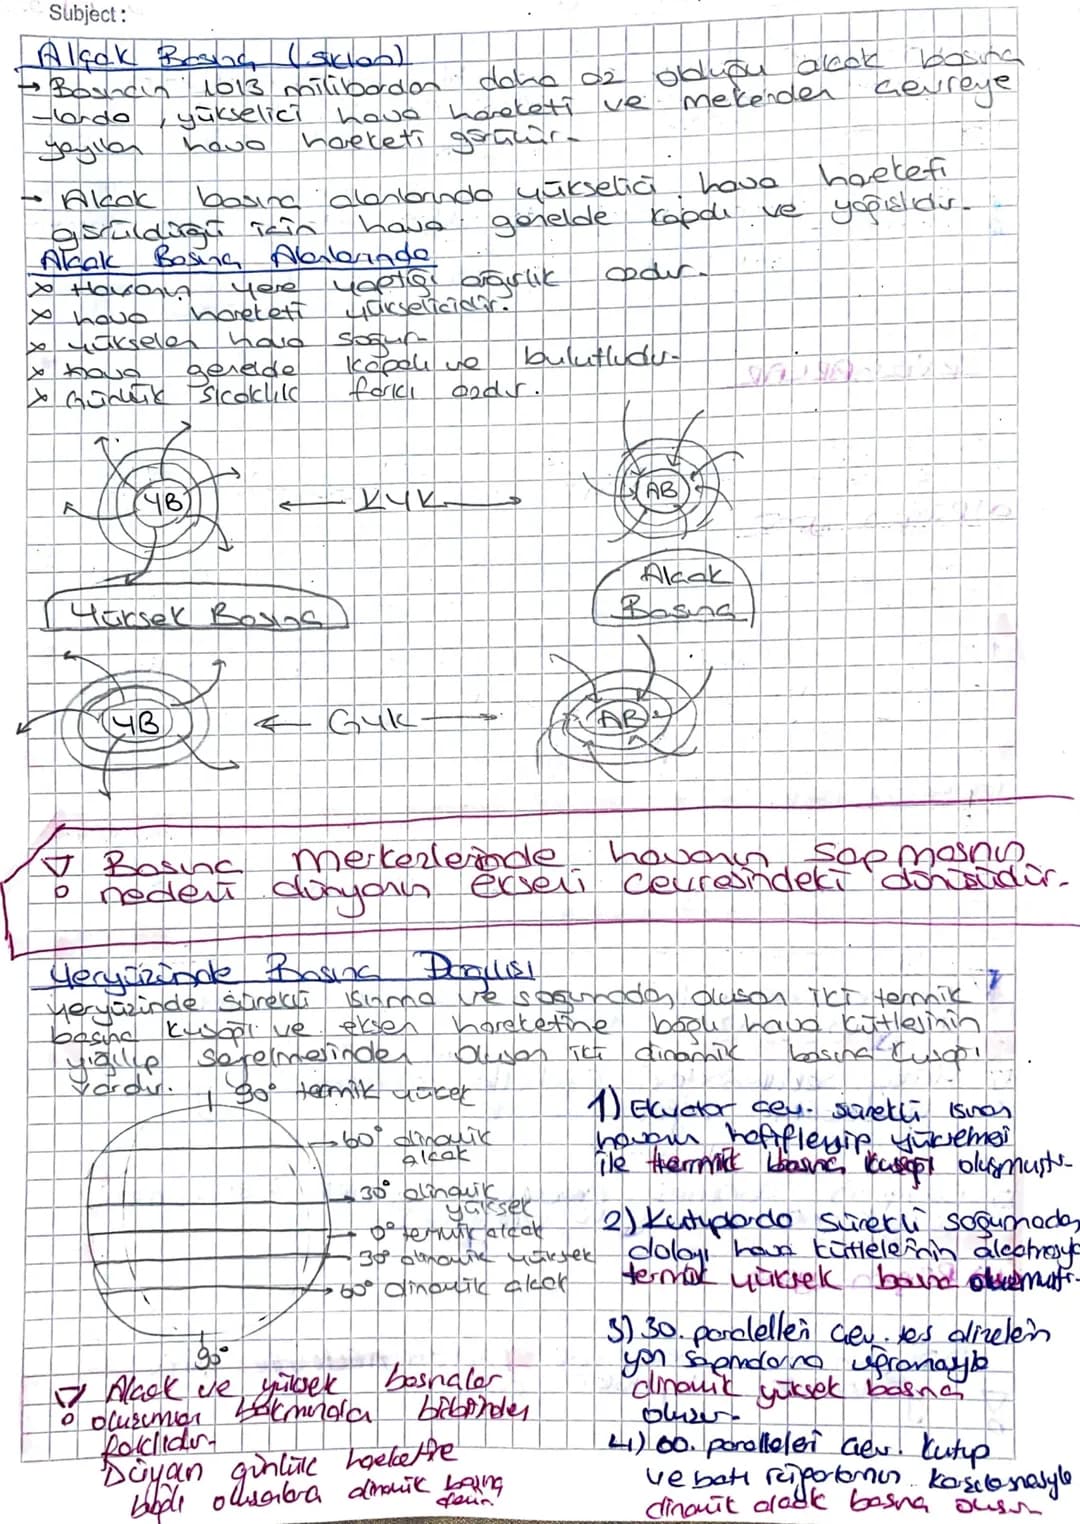 Subject:
Alçak Basınç (siklon)
→ Basıncın 1013 milibardan daha az olduğu alçak basınç
-larda, yükselici hava hareketi ve merkezden çevreye
yayılan hava hareketi görülür.
→ Alçak basınç alanlarında yükselici hava hareketi
görüldüğü için hava genelde kapalı ve yağışlıdır.
Alçak Basınç Alanlarında
x Havanın yere yaptığı ağırlık azdır.
x hava hareketi yükselicidir.
x yükselen hava soğur
x hava genelde kapalı ve bulutludur
x Günlük sıcaklık farkı azdır.
YB ← KYK → AB
Yüksek Basınç
Alçak
Basınç
YB ← GYK → AB
Basınç merkezlerinde havanın sapmasının
nedeni dünyanın ekseni çevresindeki dönüşüdür.
Yeryüzünde Basınç Dağılışı
Yeryüzünde sürekli ısınma ve soğumadan oluşan iki termik
basınç kuşağı ve eksen hareketine bağlı hava kütlesinin
yığılıp seyrelmesinden oluşan iki dinamik basınç kuşağı
vardır.
90° termik yüksek
60° dinamik
alçak
30° dinamik
yüksek
0° termik alçak
30° dinamik yüksek
60° dinamik alçak
90°
1) Ekvator çev. sürekli ısınan
havanın hafifleyip yükselmesi
ile termik basınç kuşağı oluşmuştur
2) Kutuplarda sürekli soğumadan
dolayı hava kütlelerinin alçalmasıyla
termik yüksek basınç
3) 30. paralelleri çev. ters alizelerin
yön sapmalarına uğramasıyla
dinamik yüksek basınç
oluşur.
4) 60. paralelleri çev. kutup
ve batı rüzgarlarının karşılaşmasıyla
dinamik alçak basınç oluşur
Alçak ve yüksek basınçlar
oluşumları bakımından birbirinden
farklıdır.
günlük harekette
bağlı oluşanlara dinamik basınç
denir